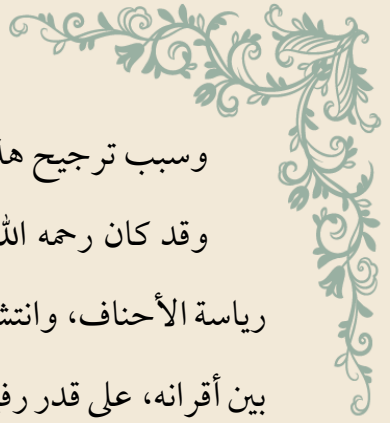 وسبب ترجيح هذ
وقد كان رحمه الله
رياسة الأحناف، وانتش
بين أقرانه، على قدر رفي